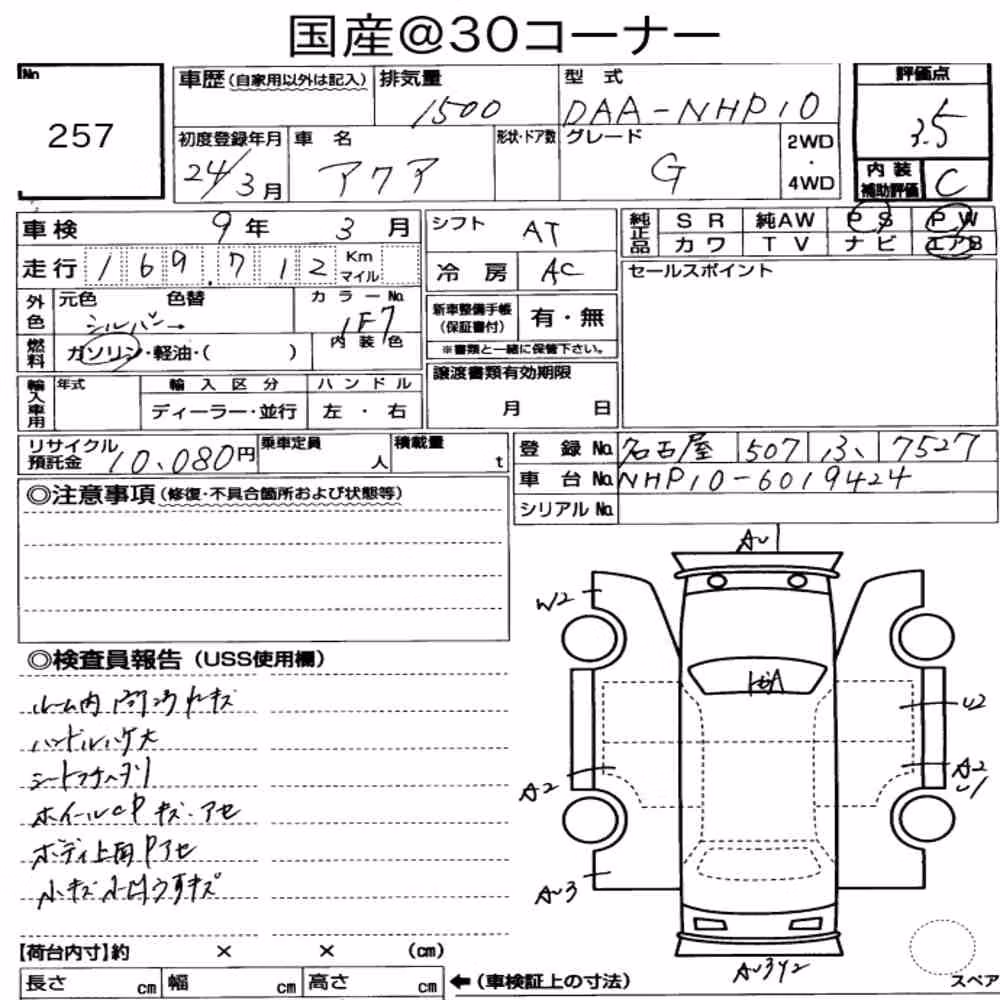 国産@30コーナー
No
257
車歴 (自家用以外は記入)
排気量 1500
型式 DAA-NHP10
評価点 3.5
初度登録年月 24/3月
車名 アクア
形状・ドア数
グレード G
2WD・4WD
内装補助評価 C
車検 9年 3月
シフト AT
純正品 SR 純AW PS PW
カワ TV ナビ エアB
走行 169,712 Km マイル
冷房 AC
セールスポイント
外色 元色 シルバー→ 色替
カラーNo. 1F7
新車整備手帳 (保証書付) 有・無
※書類と一緒に保管下さい。
燃料 ガソリン・軽油・( )
内装色
輸入車用 年式
輸入区分 ディーラー・並行
ハンドル 左・右
譲渡書類有効期限
月 日
リサイクル預託金 10,080円
乗車定員 人
積載量 t
登録No. 名古屋 507 ひ 7527
車台No. NHP10-6019424
シリアルNo.
◎注意事項 (修復・不具合箇所および状態等)
◎検査員報告 (USS使用欄)
ルーム内 キズ
ハンドルハゲ大
シート
ホイールCPキズ・アセ
ボディ上面Pアセ
小キズ小凹
A〜1
W2
U2
A2
A2
U1
A〜3
A〜3Y2
【荷台内寸】約 × × (cm)
長さ cm 幅 cm 高さ cm
←(車検証上の寸法)
スペア